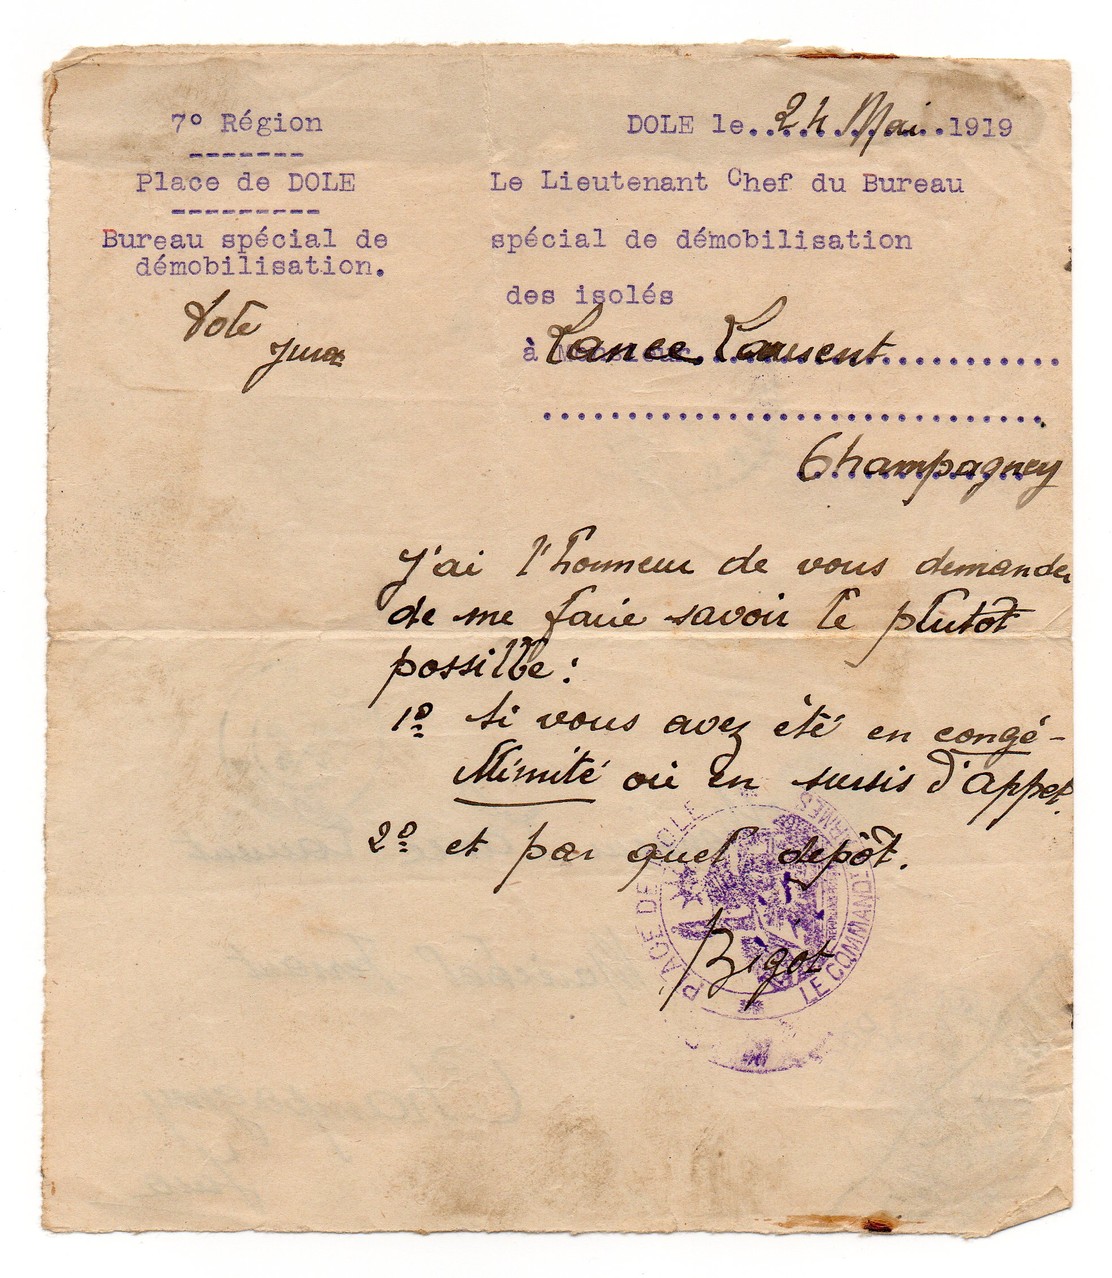 7° Région
-------
Place de DOLE
---------
Bureau spécial de
démobilisation.
Dole
Jura
DOLE le..24 Mai..1919
Le Lieutenant Chef du Bureau
spécial de démobilisation
des isolés
à Monsieur Lance Laurent
Champagney
J'ai l'honneur de vous demander
de me faire savoir le plutôt
possible :
1º Si vous avez été en congé-
illimité ou en sursis d'appel.
2º et par quel depôt.
Bigot
PLACE DE DOLE
LE COMMANDT D'ARMES